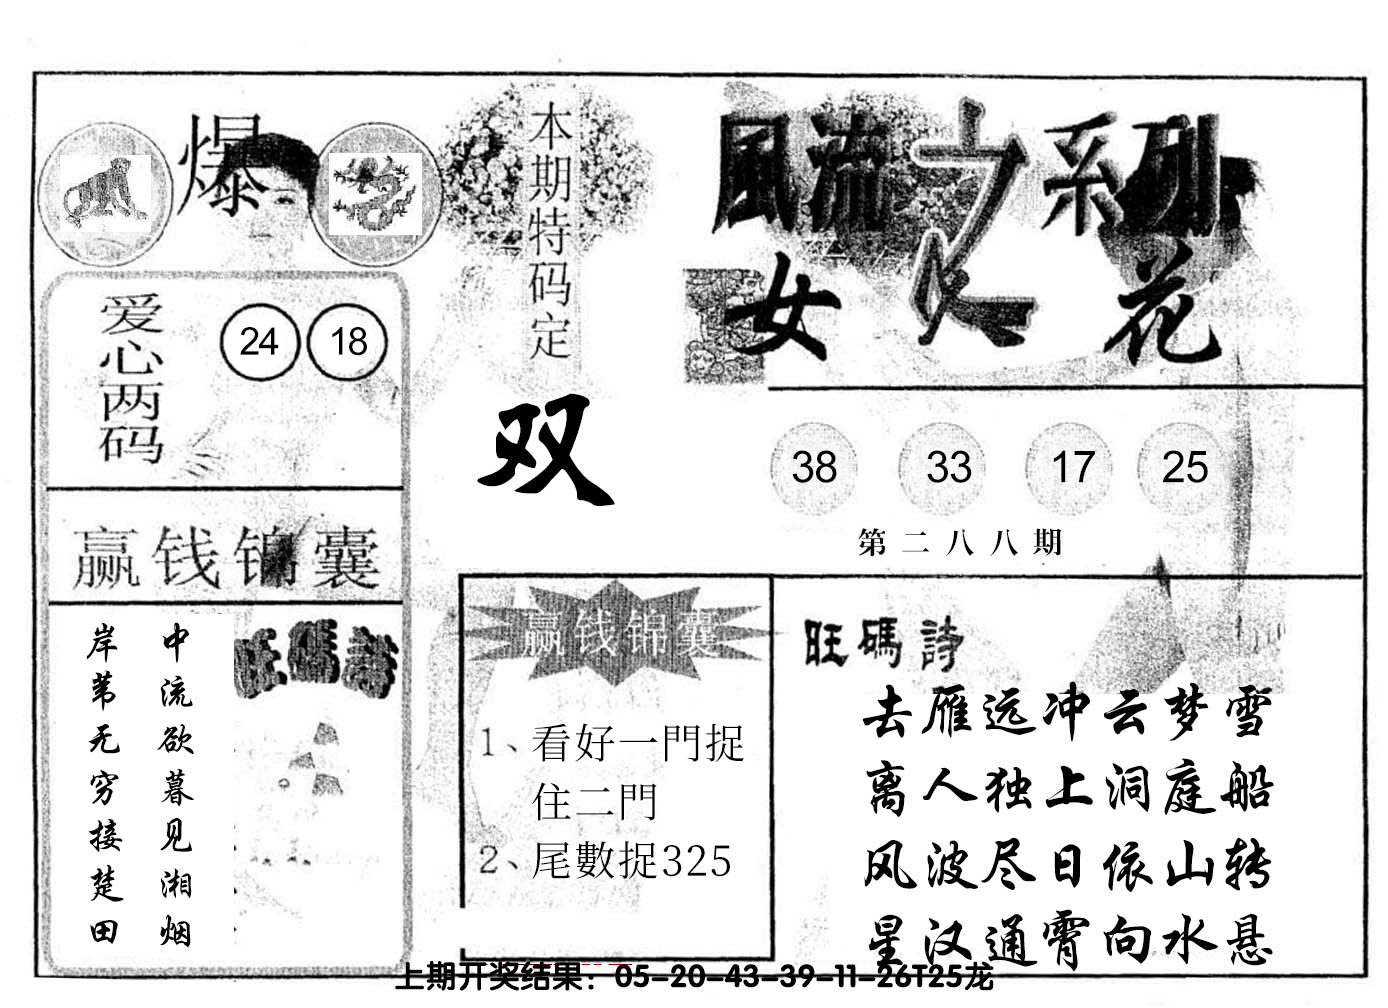 爆
爱心两码
24 18
赢钱锦囊
中流欲暮见湘烟
岸苇无穷接楚田
旺碼詩
本期特码定
双
風流之系列
女人花
38 33 17 25
第二八八期
赢钱锦囊
1、看好一門捉
住二門
2、尾數捉325
旺碼詩
去雁远冲云梦雪
离人独上洞庭船
风波尽日依山转
星汉通霄向水悬
上期开奖结果：05-20-43-39-11-26T25龙